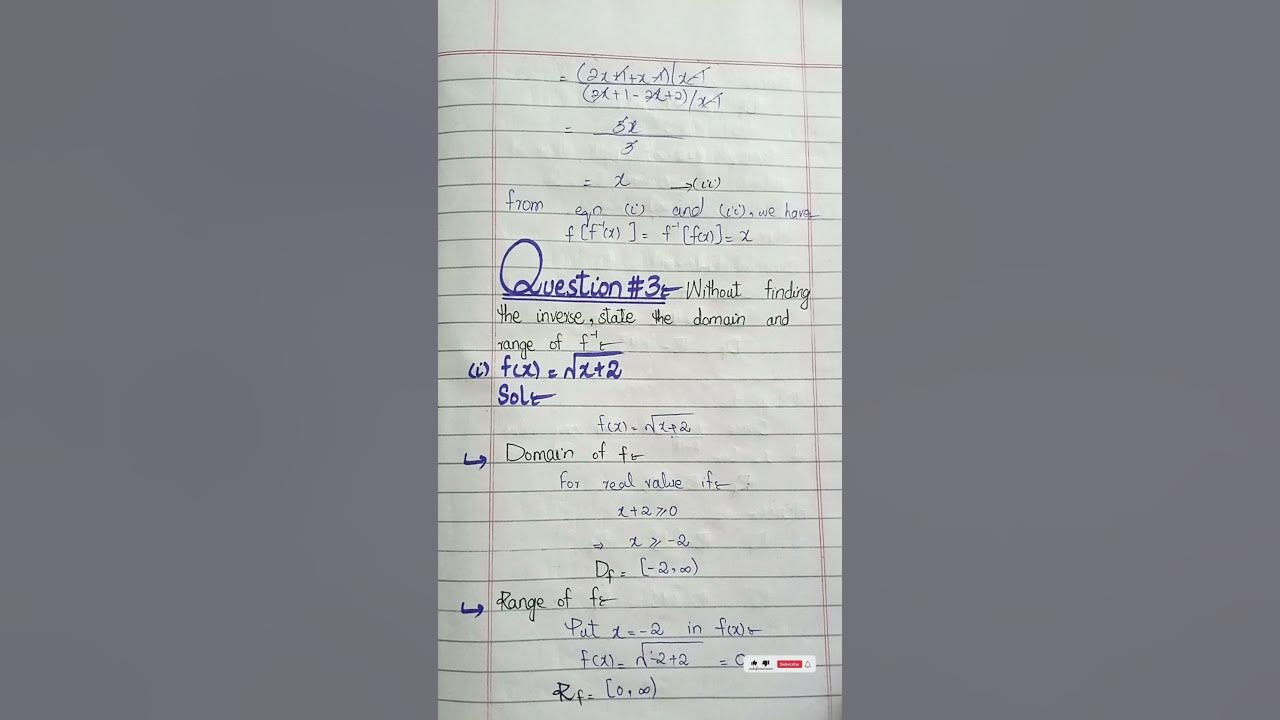 = (2x+1+x-1)/x-1
(2x+1-2x+2)/x-1
= 3x
3
= x →(ii)
from eqn (i) and (ii), we have
f[f⁻¹(x)] = f⁻¹[f(x)] = x
Question #3:- Without finding
the inverse, state the domain and
range of f⁻¹:-
(i) f(x) = √x+2
Sol:-
f(x) = √x+2
↪ Domain of f:-
For real value if:-
x+2 ≥ 0
⇒ x ≥ -2
Df = [-2, ∞)
↪ Range of f:-
Put x = -2 in f(x):-
f(x) = √-2+2 =
Subscribe
Rf = [0, ∞)